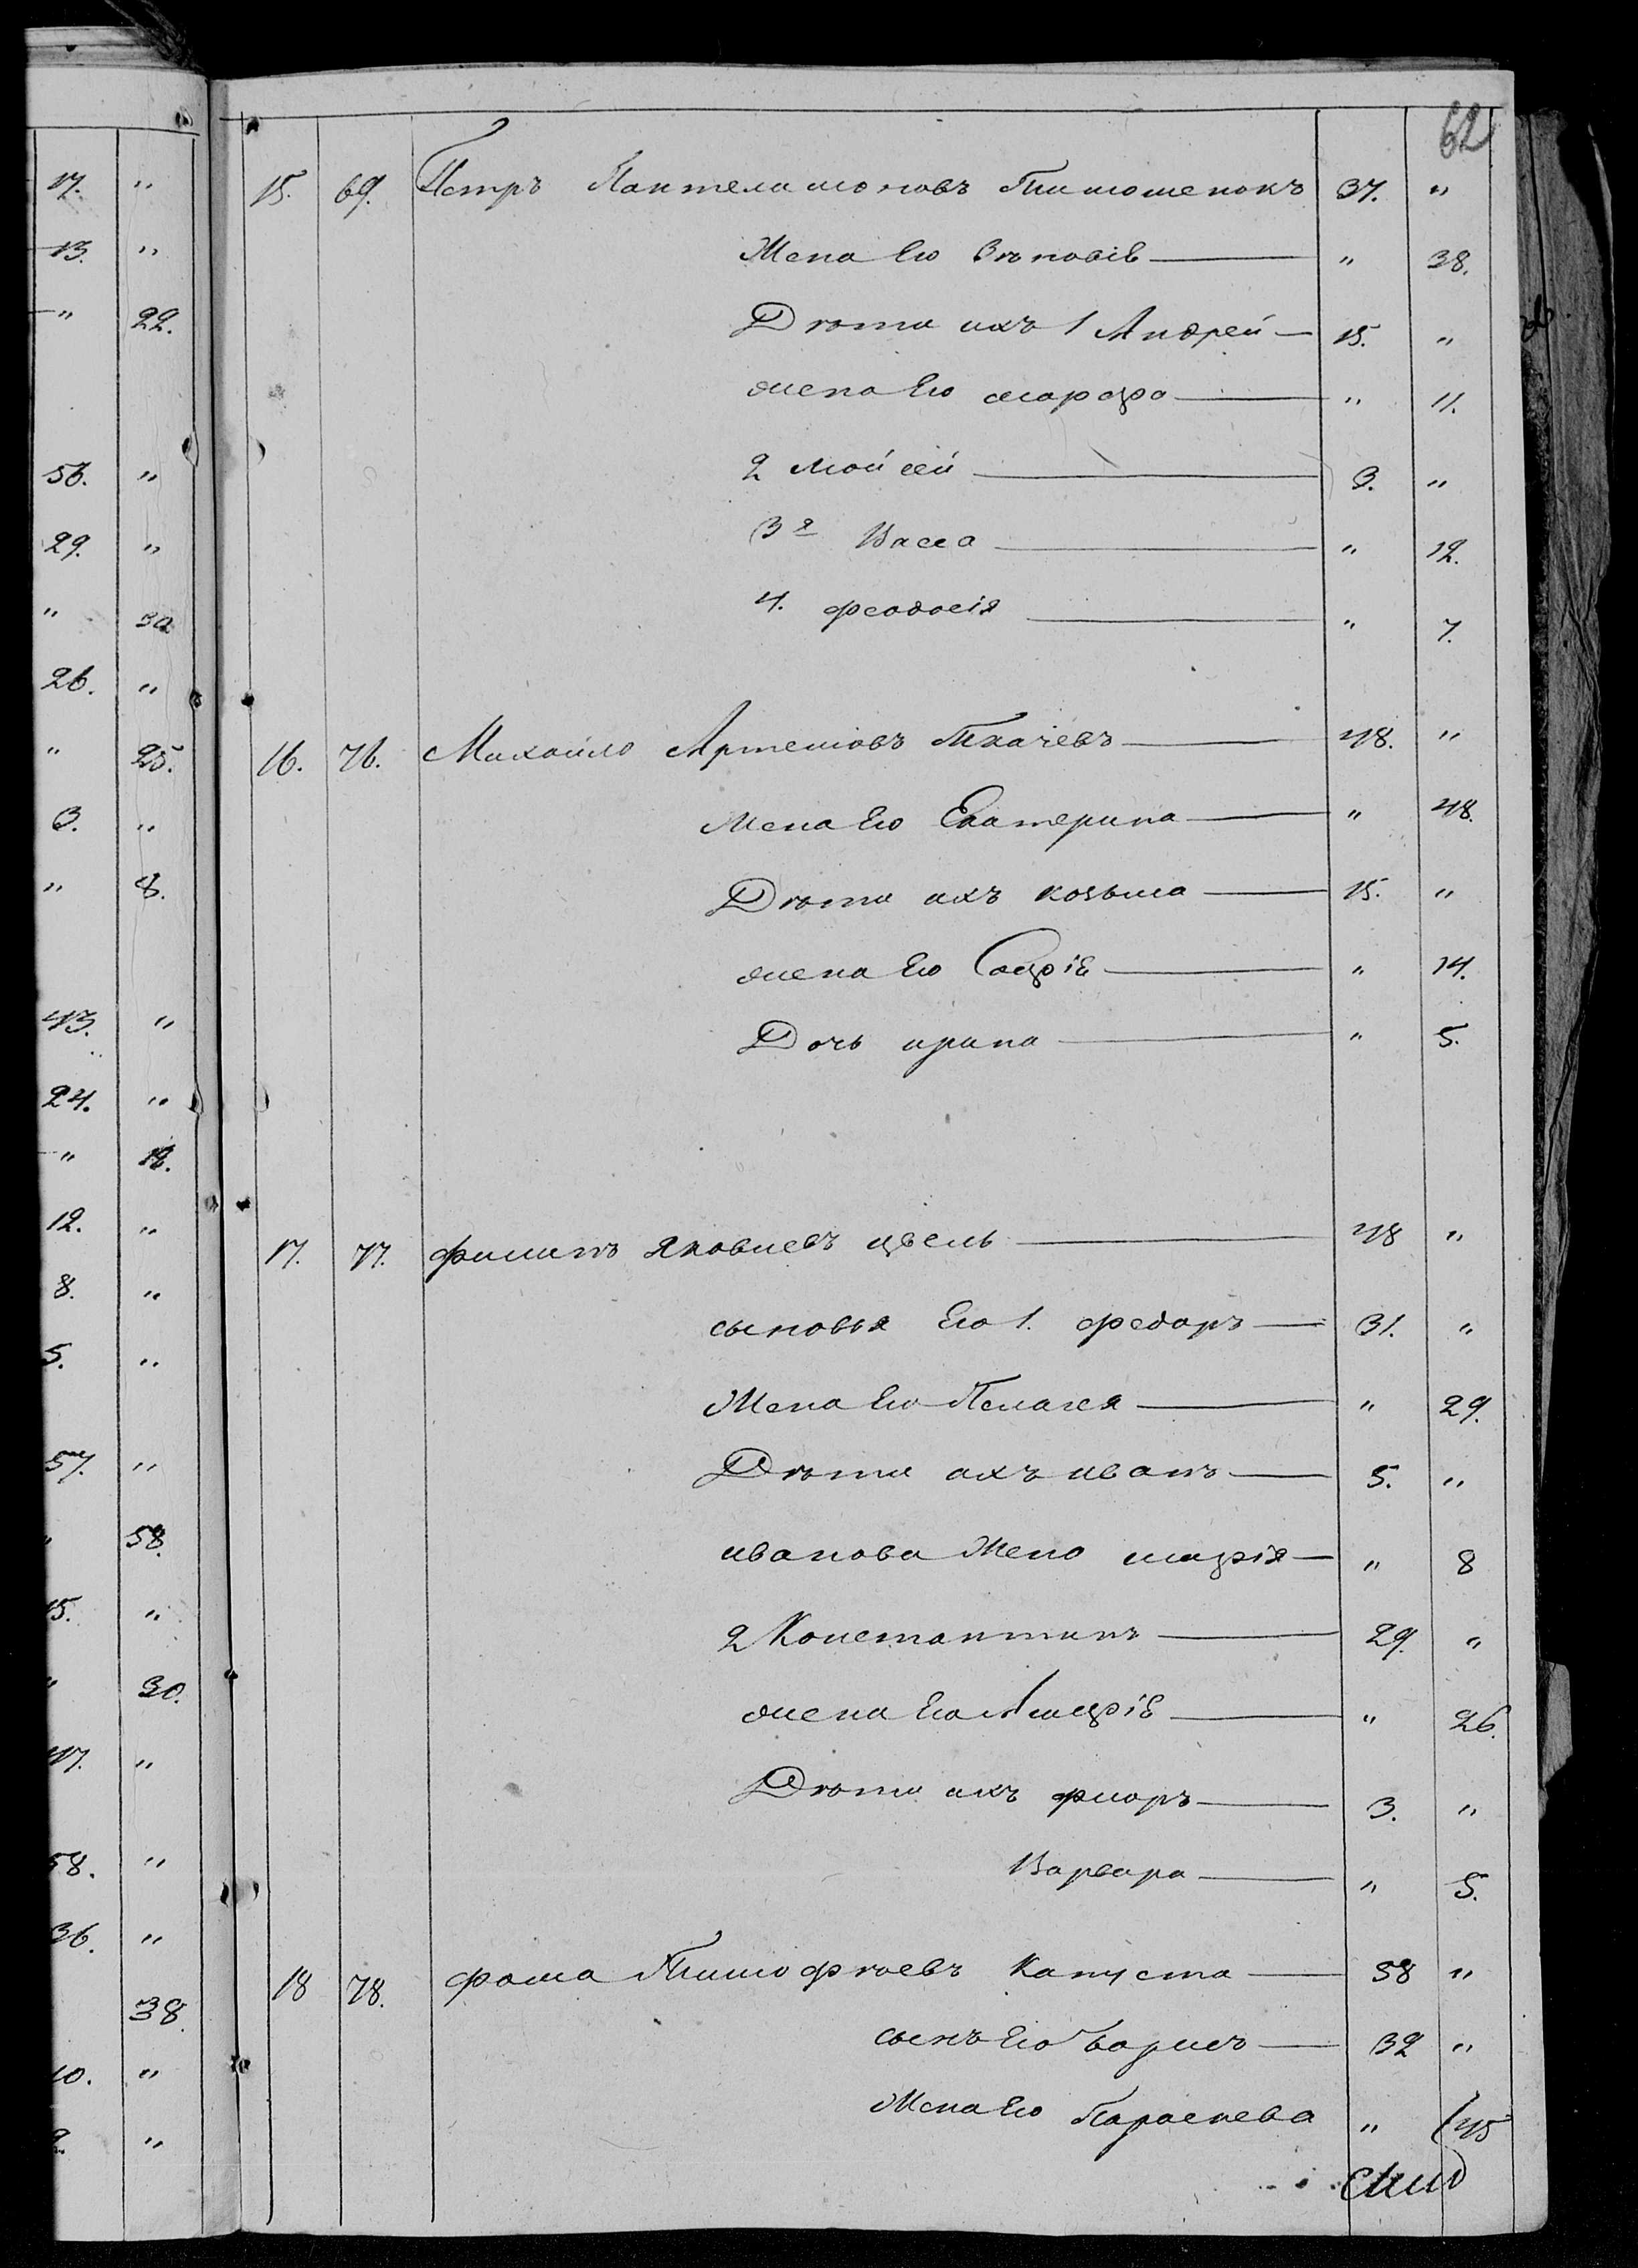 62
15. 69. Петръ Пантелимоновъ Тимошенокъ 37. "
Жена Его Зѣновія " 38.
Дѣти ихъ 1 Андрей 15. "
жена Его марфа " 11.
2 Мойсей 3. "
3я Васса " 12.
4. феодосія " 7.
16. 76. Михайло Артемовъ Ткачевъ 48. "
Жена Его Екатерина " 48.
Дѣти ихъ козьма 15. "
жена Его Софія " 14.
Дочь ирина " 5.
17. 77. филипъ яковлевъ цвель 48 "
сыновья Его 1. федоръ 31. "
Жена Его Пелагея " 29.
Дѣти ихъ иванъ 5. "
иванова Жена " 8
2 Константинъ 29. "
жена Его " 26.
Дѣти ихъ флоръ 3. "
Варвара " 5.
18 78. фома Тимофѣевъ Капуста 58 "
сынъ Его борисъ 32 "
Жена Его Параскева " 45
17. "
13. "
" 22.
56. "
29. "
" 30
26. "
" 25.
3. "
" 8.
43. "
24. "
" 18.
12. "
8. "
5. "
57. "
" 58.
15. "
" 30.
47. "
58. "
36. "
38.
10. "
2 "